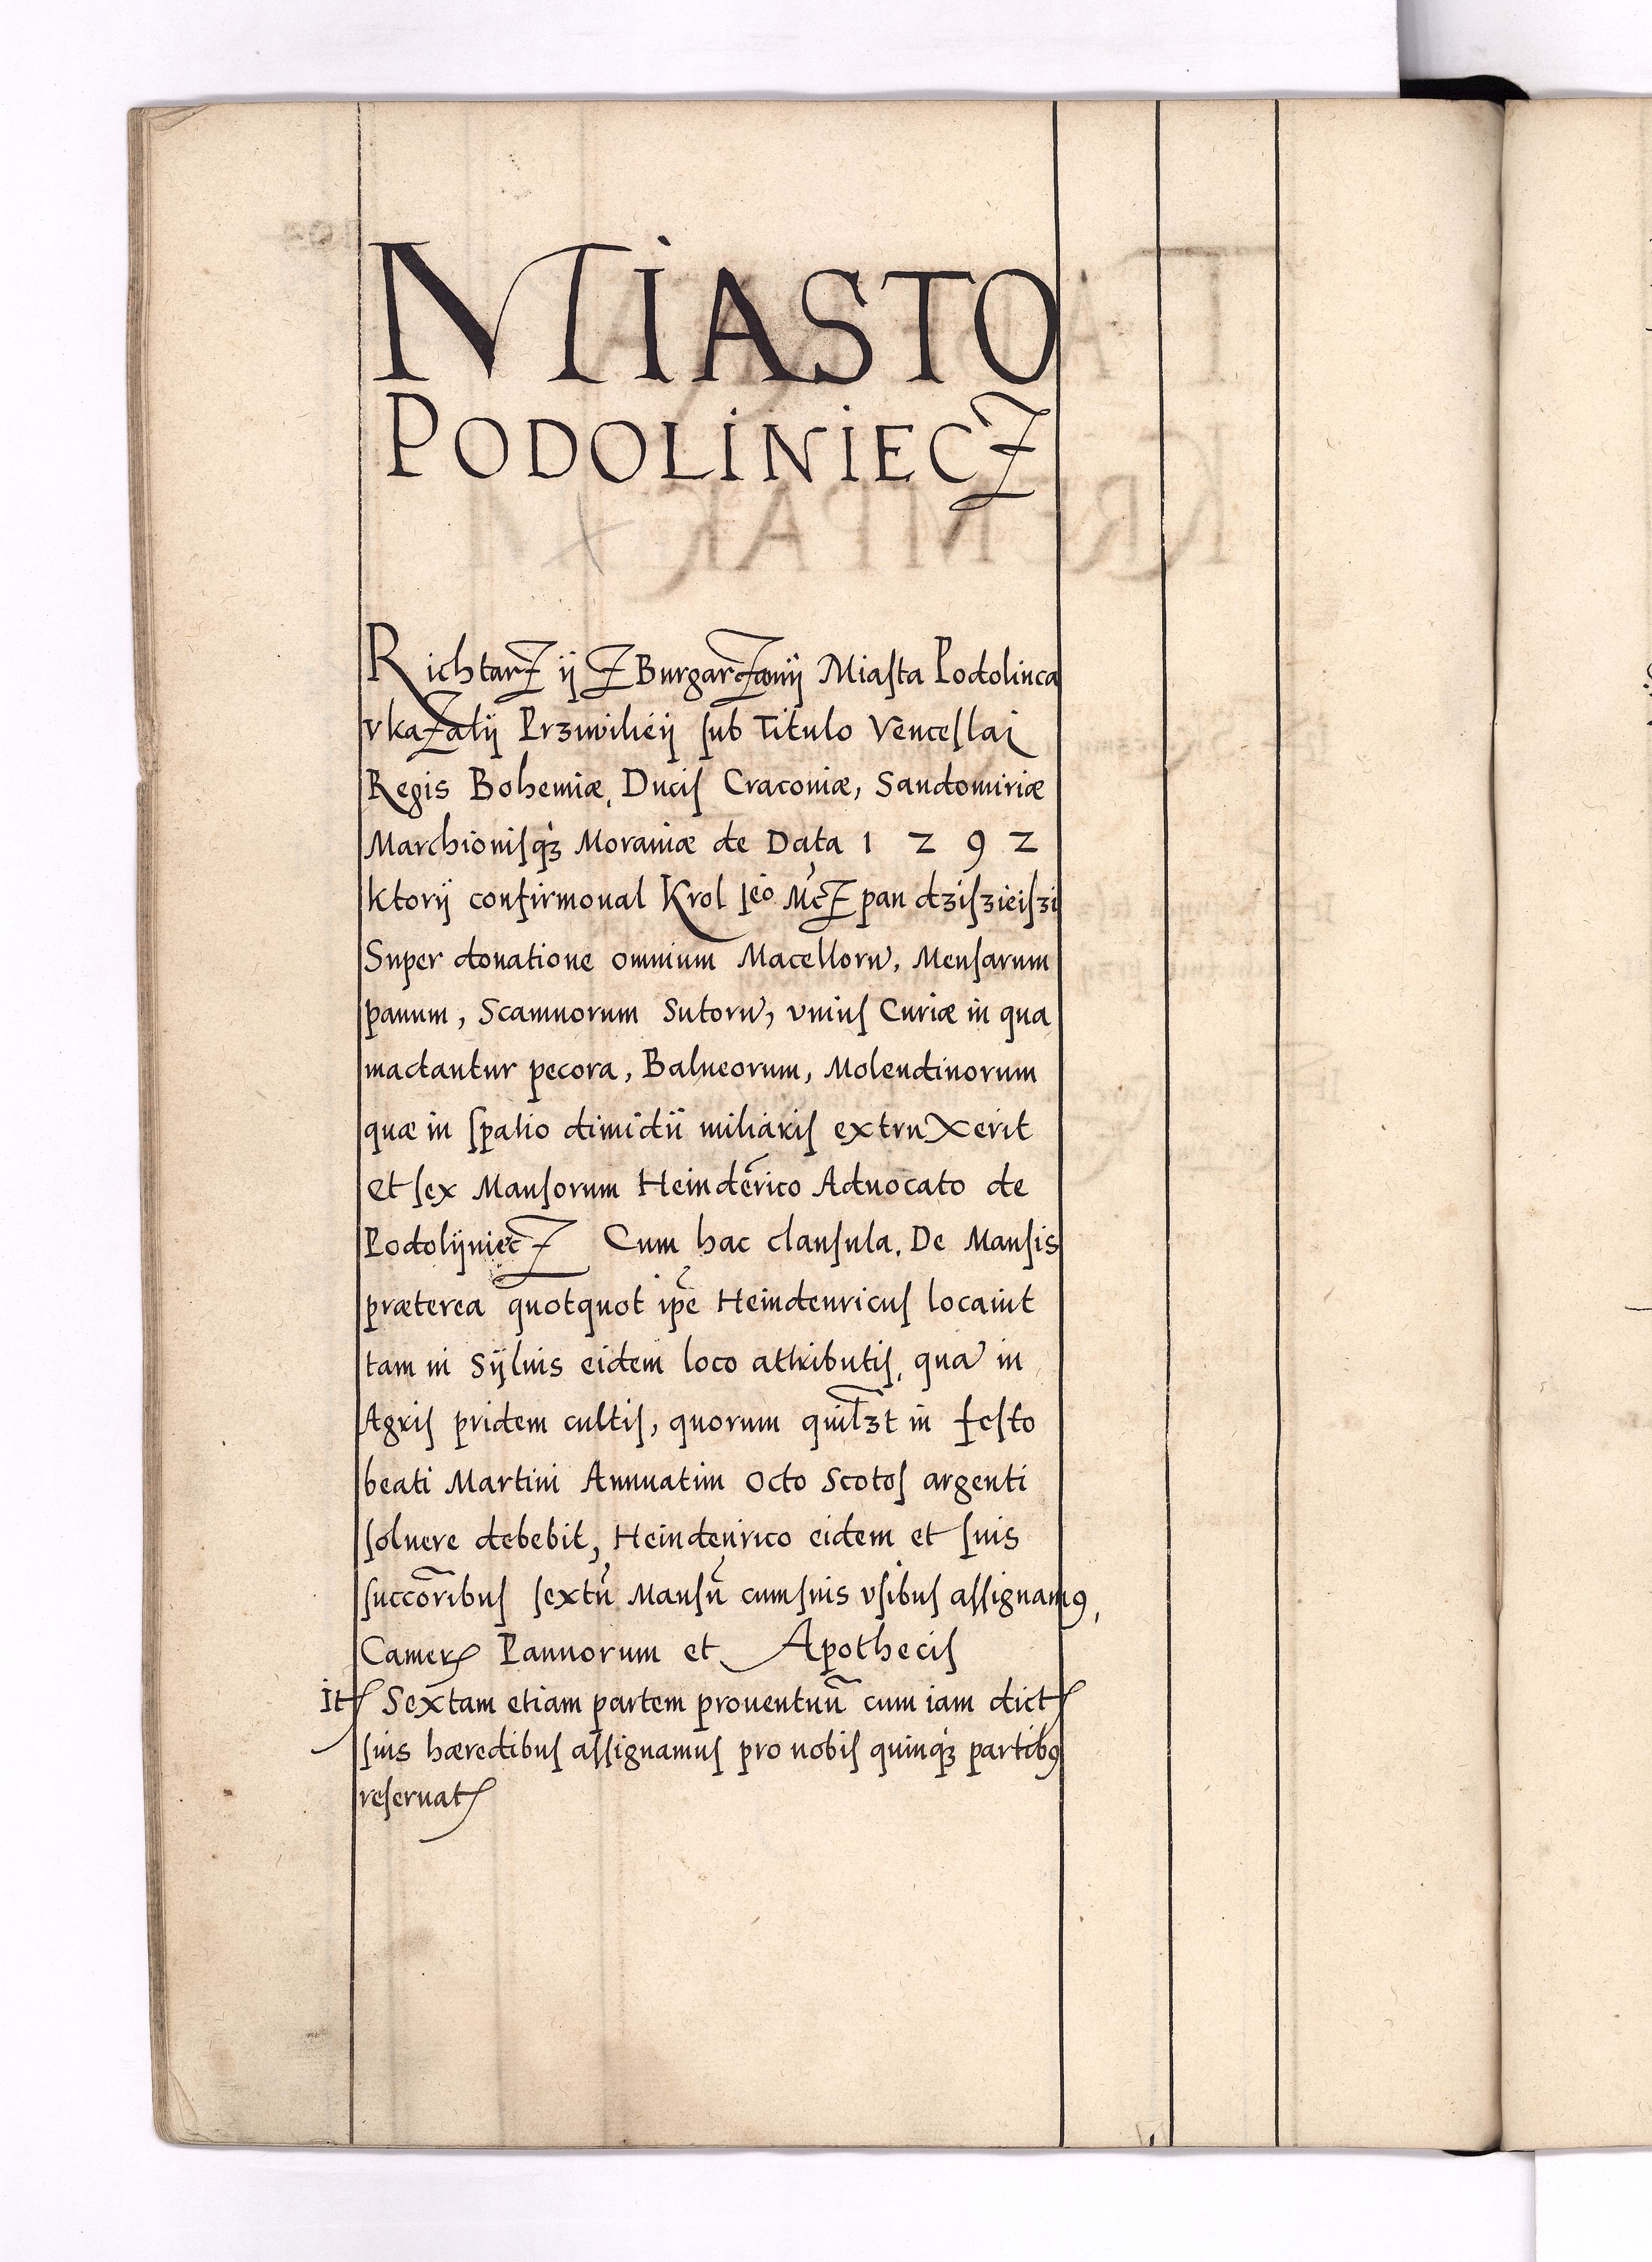 MiASTO
PODOLiNiECZ
RichtarZ ij Z BurgarZamij Miaſta Podolinca
vkaZalij Prziwilieij ſub Titulo Venceſlai
Regis Bohemiæ, Ducis Cracoviæ, Sandomiriæ
Marchioniſqꝫ Morauiæ de Data 1 2 9 2
ktorij confirmoual Krol Jeo McZ pan dziſzieiſzi
Super donatione omnium Macellorū, Menſarum
panum, Scamnorum Sutorū, vniuſ Curiæ in qua
mactantur pecora, Balneorum, Molendinorum
quæ in ſpatio dimidii miliariſ extruxerit
et ſex Manſorum Heindērico Aduocato de
PodolijniecZ Cum hac clauſula. De Manſis
præterea quotquot ip̄e Heindenricuſ locauit
tam in Sijluis eidem loco attributiſ, quā in
Agriſ pridem cultiſ, quorum quil̄ꝫt in feſto
beati Martini Annuatim Octo Scotoſ argenti
ſoluere debebit, Heindenrico eidem et ſuis
ſuccōribuſ ſextū Manſū cum ſuis vſibuſ aſſignamꝰ,
Camerꝭ Pannorum et Apotheciſ
Itꝭ Sextam etiam partem prouentuū cum iam dictꝭ
ſuis hæredibuſ aſſignamuſ pro nobiſ quinqꝫ partibꝰ
reſeruatꝭ